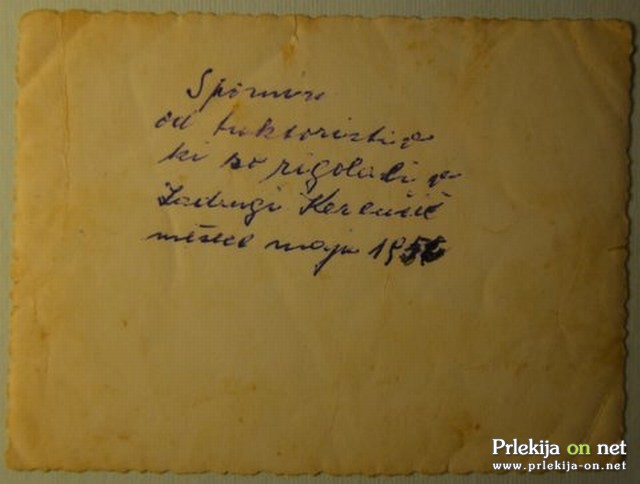 Spomin
od traktoristi v
ki so rigolali v
Zadrugi Kerenčič
mesec maja
Prlekija on net
www.prlekija-on.net